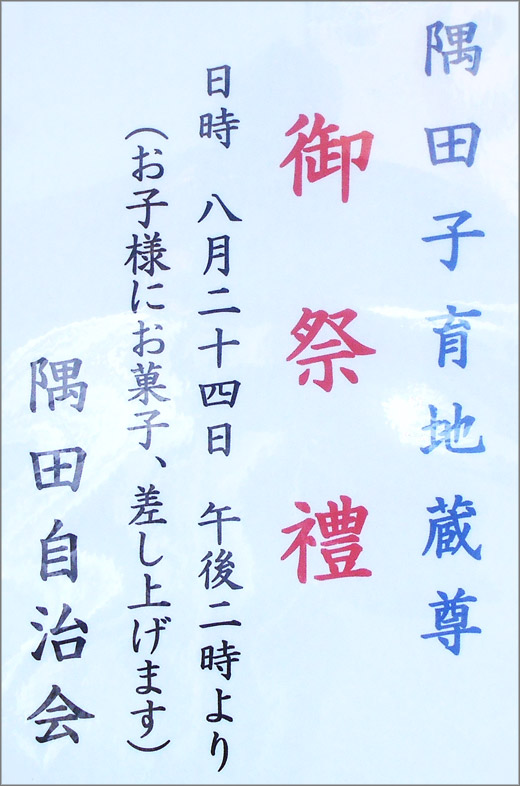 隅田子育地蔵尊
御祭禮
日時　八月二十四日　午後二時より
（お子様にお菓子、差し上げます）
隅田自治会